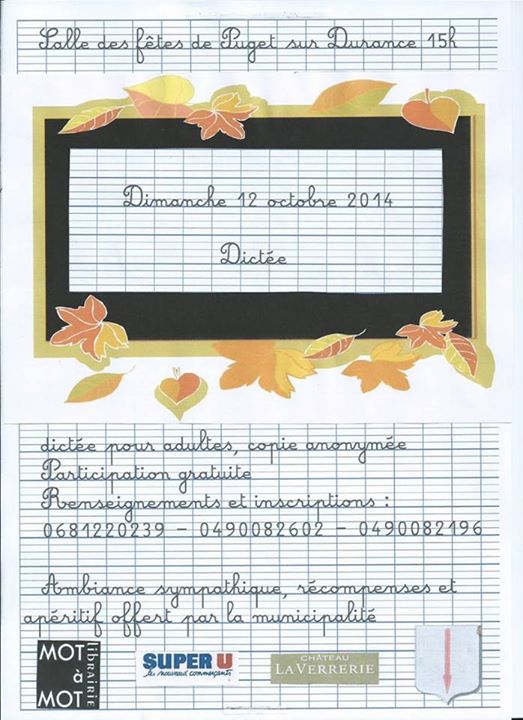 Salle des fêtes de Puget sur Durance 15h
Dimanche 12 octobre 2014
Dictée
dictée pour adultes, copie anonymée
Participation gratuite
Renseignements et inscriptions :
0681220239 - 0490082602 - 0490082196
Ambiance sympathique, récompenses et
apéritif offert par la municipalité
MOT
à
MOT
librairie
SUPER U
les nouveaux commerçants
CHÂTEAU
LA VERRERIE